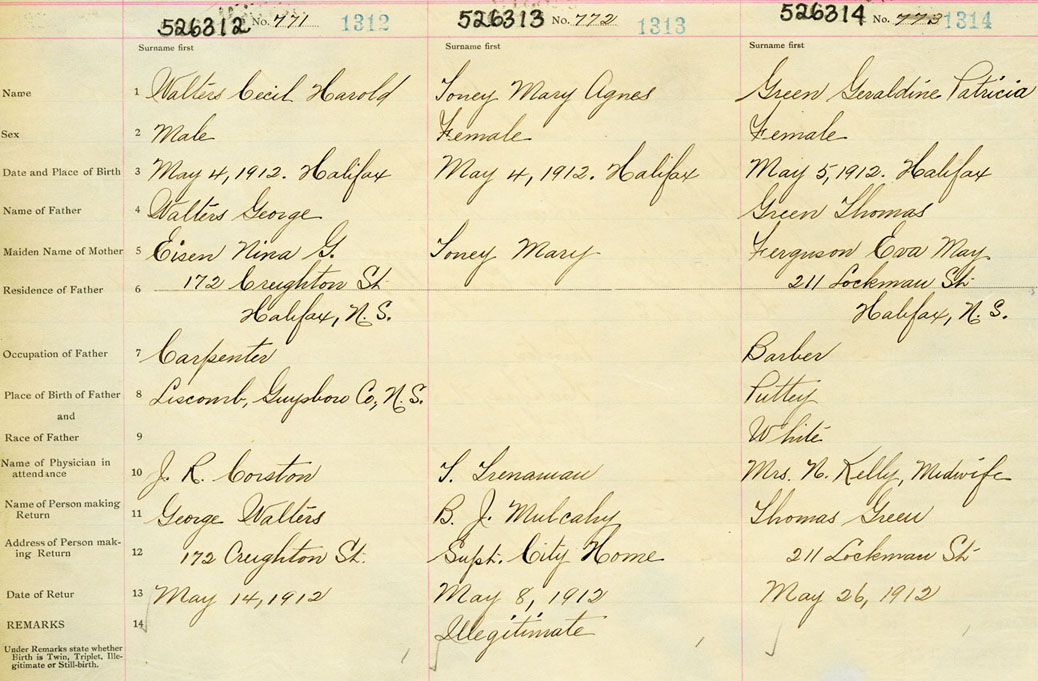 526312 No. 771 1312 526313 No. 772 1313 526314 No. 773 1314
Surname first Surname first Surname first
Name 1 Walters Cecil Harold Toney Mary Agnes Green Geraldine Patricia
Sex 2 Male Female Female
Date and Place of Birth 3 May 4, 1912. Halifax May 4, 1912. Halifax May 5, 1912. Halifax
Name of Father 4 Walters George Green Thomas
Maiden Name of Mother 5 Eisen Nina G. Toney Mary Ferguson Eva May
Residence of Father 6 172 Creighton St. 211 Lockman St.
Halifax, N.S. Halifax, N.S.
Occupation of Father 7 Carpenter Barber
Place of Birth of Father 8 Liscomb, Guysboro Co, N.S. Puttey
and
Race of Father 9 White
Name of Physician in attendance 10 J. R. Corston T. Trenaman Mrs. N. Kelly, Midwife
Name of Person making Return 11 George Walters B. J. Mulcahy Thomas Green
Address of Person mak-
ing Return 12 172 Creighton St. Supt. City Home 211 Lockman St
Date of Retur 13 May 14, 1912 May 8, 1912 May 26, 1912
REMARKS 14 Illegitimate
Under Remarks state whether
Birth is Twin, Triplet, Ille-
gitimate or Still-birth.